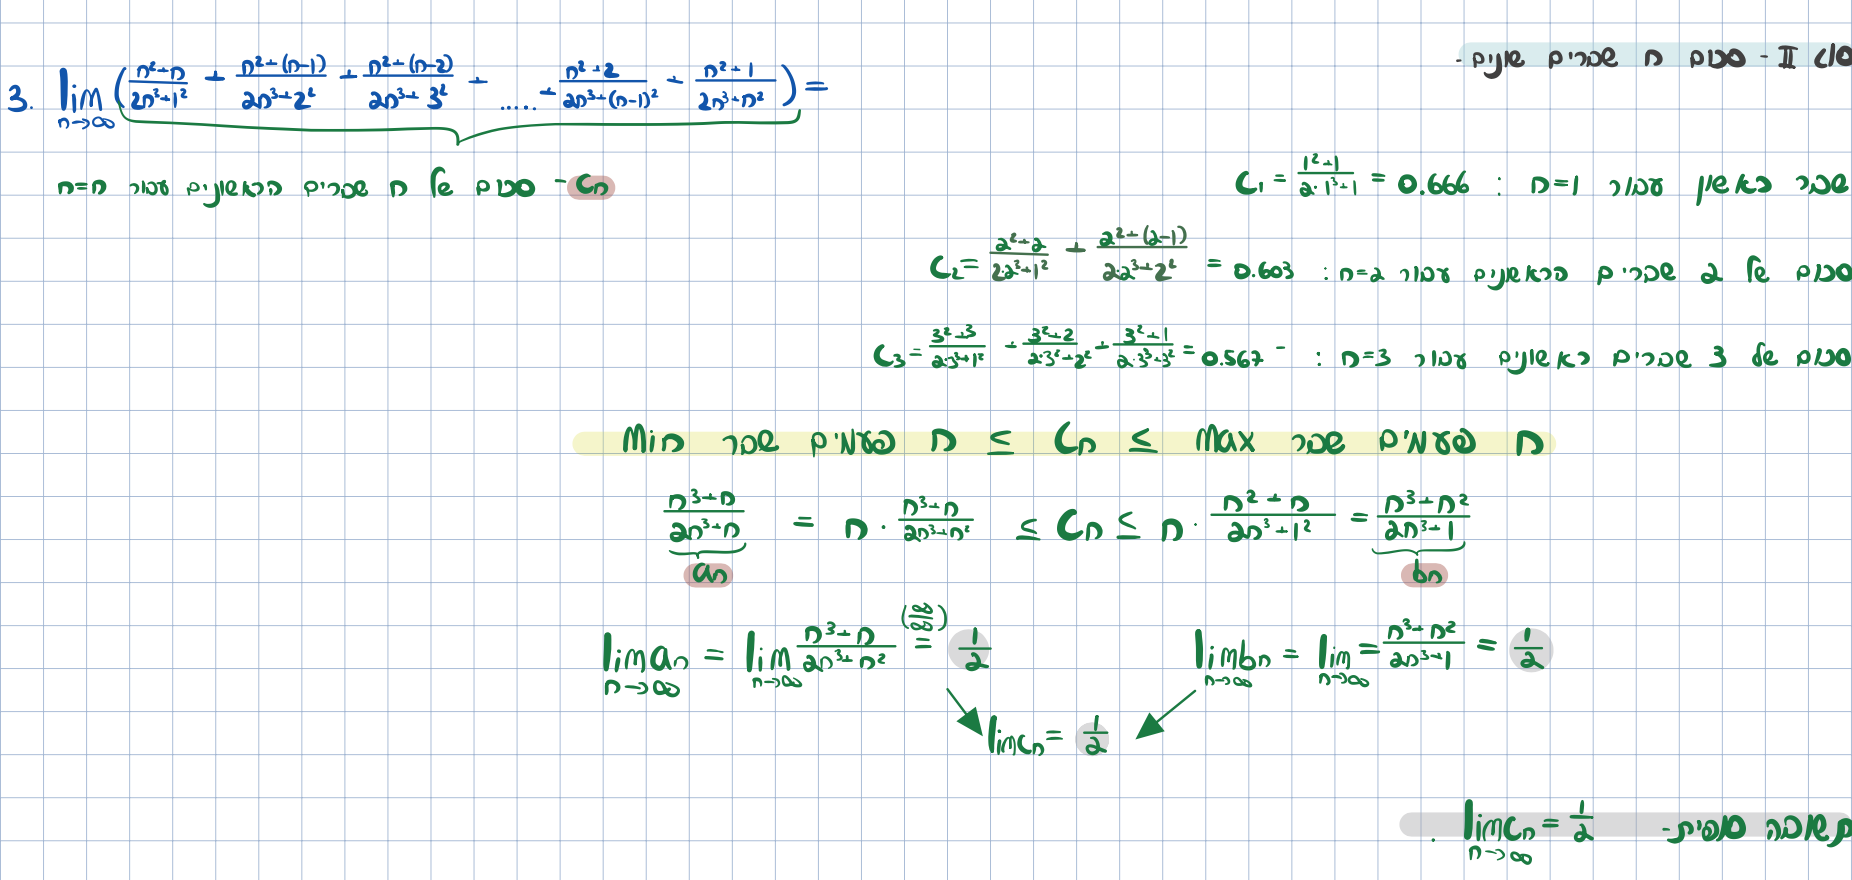 סוג II - סכום n שברים שונים -
3. lim n→∞ ( (n²+n)/(2n³+1²) + (n²+(n-1))/(2n³+2²) + (n²+(n-2))/(2n³+3²) + ..... + (n²+2)/(2n³+(n-1)²) + (n²+1)/(2n³+n²) ) =
Cₙ - סכום של n שברים הראשונים עבור n=n
שבר ראשון עבור n=1 : C₁ = (1²+1)/(2·1³+1) = 0.666
סכום של 2 שברים הראשונים עבור n=2 : C₂ = (2²+2)/(2·2³+1²) + (2²+(2-1))/(2·2³+2²) = 0.603
סכום של 3 שברים ראשונים עבור n=3 : C₃ = (3²+3)/(2·3³+1²) + (3²+2)/(2·3²+2²) + (3²+1)/(2·3³+3²) = 0.567 -
n פעמים שבר Min ≤ Cₙ ≤ Max פעמים שבר n
(n³+n)/(2n³+n) = n · (n³+n)/(2n³+n²) ≤ Cₙ ≤ n · (n²+n)/(2n³+1²) = (n³+n²)/(2n³+1)
aₙ bₙ
lim n→∞ aₙ = lim n→∞ (n³+n)/(2n³+n²) (∞/∞) = 1/2 lim n→∞ bₙ = lim n→∞ = (n³+n²)/(2n³+1) = 1/2
lim Cₙ = 1/2
תשובה סופית - lim n→∞ Cₙ = 1/2 .